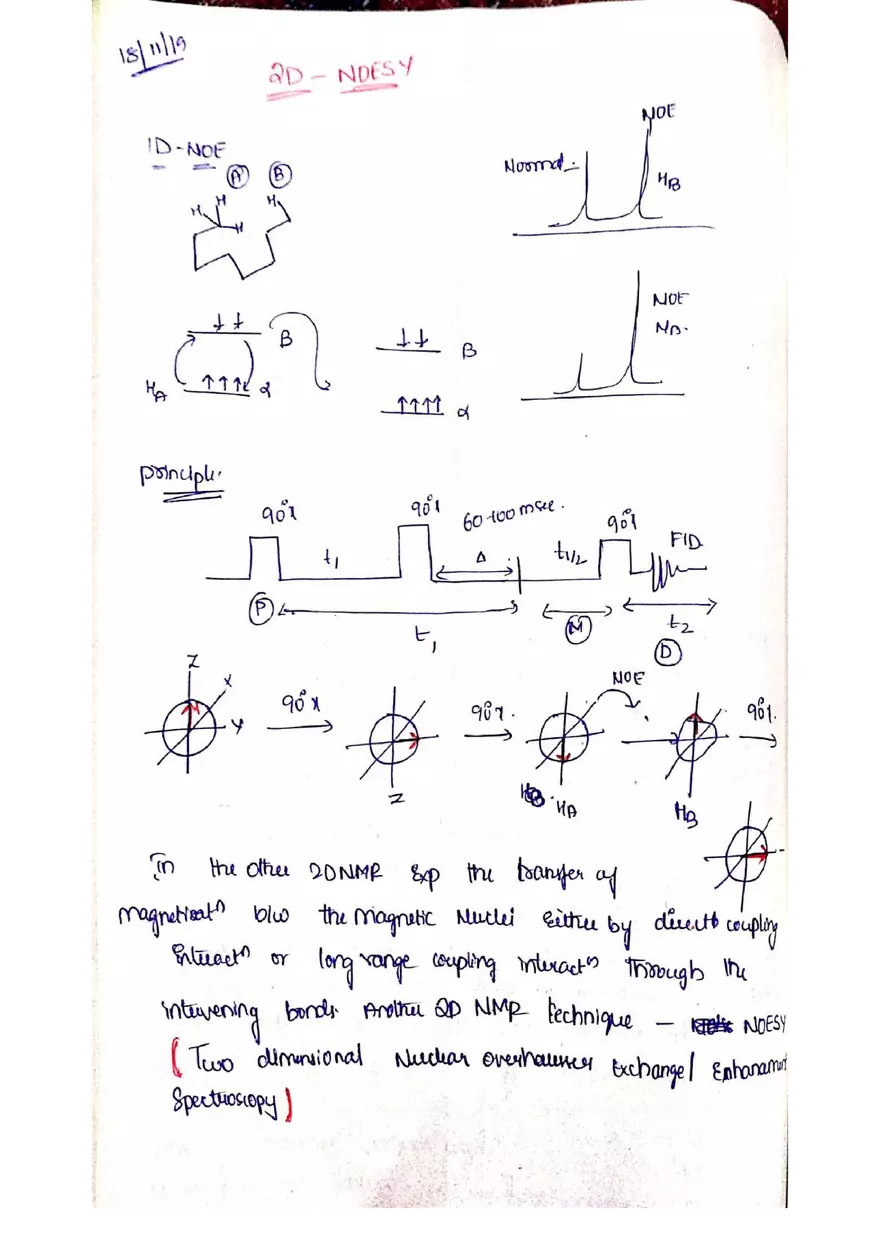 18/11/19
2D - NOESY
1D - NOE
A B
H H H H
Normal NOE
HB
↓↓ B
HA ↑↑↑↑ α
↓↓ B
↑↑↑↑ α
NOE
principle.
90°x 90°x 60-100 msec. 90°x
t1 Δ t1/2 FID
P t1 M t2
D
Z X Y
90°x 90°x. NOE 90°x.
Z HA HB
In the other 2DNMR Exp the transfer of
magnetisatn b/w the magnetic Nuclei Either by direct coupling
Interactn or long range coupling interactn through the
intervening bonds. Another 2D NMR technique - NOESY
(Two dimensional Nuclear overhauser Exchange/ Enhanament
Spectroscopy)